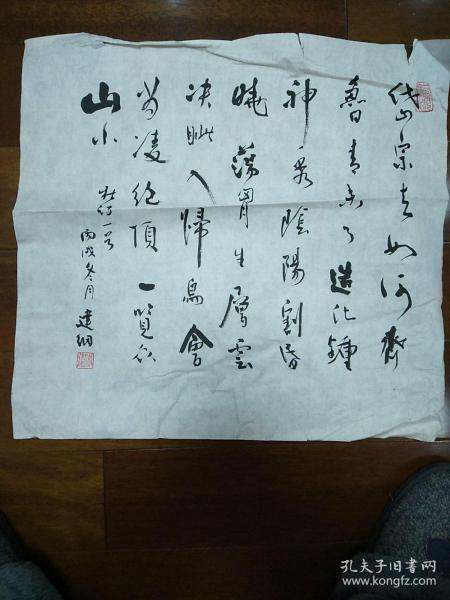 岱宗夫如何齊
魯青未了造化鍾
神秀陰陽割昏
曉蕩胸生層雲
決眦入歸鳥會
當凌絕頂一覽众
山小
杜詩一首
丙戌冬月 建
孔夫子旧书网
www.kongfz.com